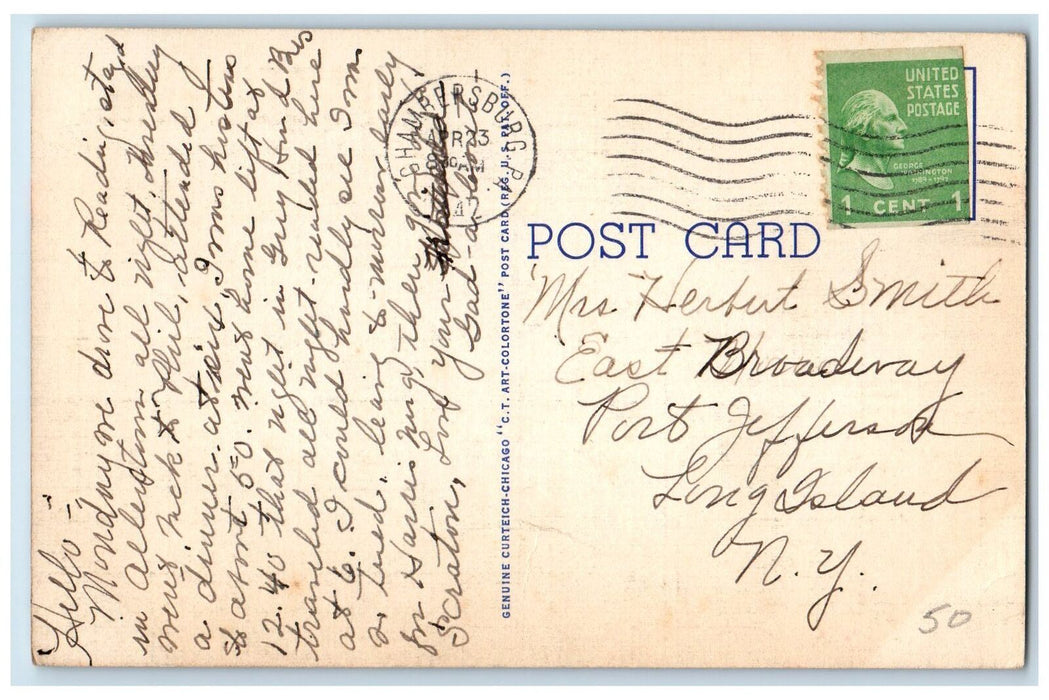 Hello -
Monday we drove to Reading, stayed
in Allentown all night. Tuesday
went back to Phil, attended
a dinner at six I was hostess
to about 50. went home left at
12.40 that night in Grey Hound Bus
traveled all night - reached here
at 6. I could hardly see I was
so tired. leaving to-morrow early
for Harrisburg, then on to
Scranton, Love your
Gad-about
CHAMBERSBURG, P
APR 23
8 AM
1942
UNITED
STATES
POSTAGE
GEORGE
WASHINGTON
1789-1797
1 CENT 1
POST CARD
Mrs Herbert Smith
East Broadway
Port Jefferson
Long Island
N.Y.
50
GENUINE CURTEICH-CHICAGO "C.T. ART-COLORTONE" POST CARD (REG. U.S. PAT. OFF.)